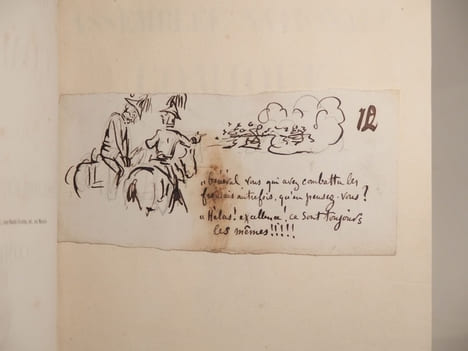 12
« Général vous qui avez combattu les
français autrefois, qu'en pensez-vous ?
« Hélas ! excellence, ce sont toujours
les mêmes !!!!!